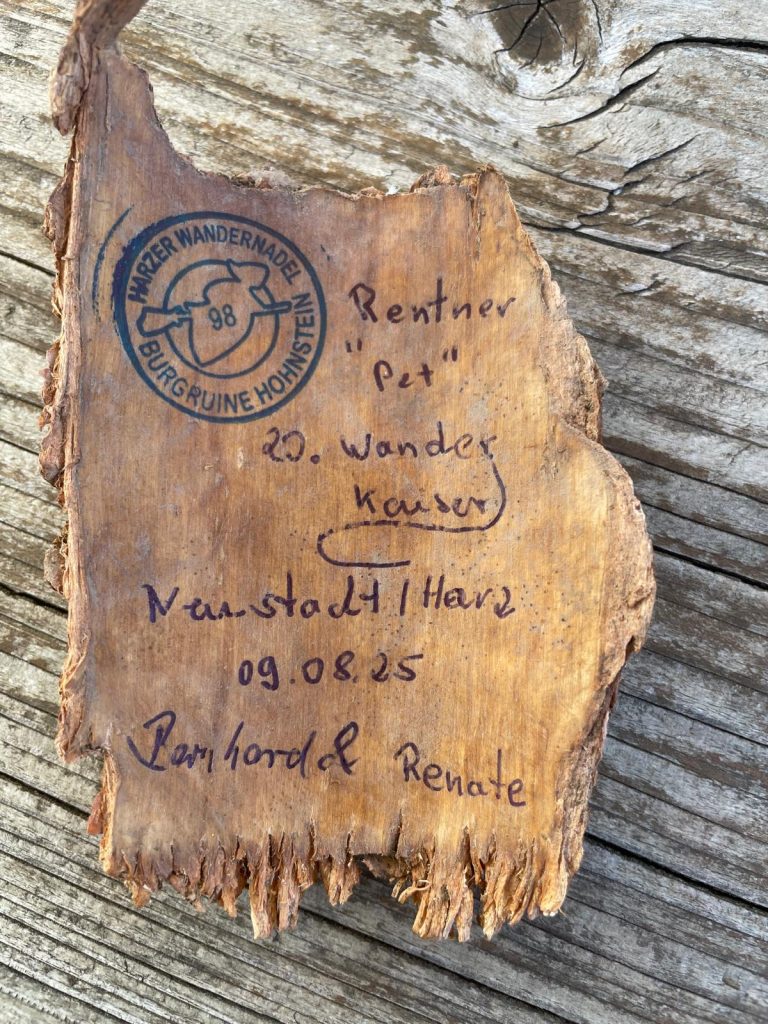 HARZER WANDERNADEL
98
BURGRUINE HOHNSTEIN
Rentner
"Pet"
20. Wander
Kaiser
Neustadt / Harz
09.08.25
Bernhard &
Renate